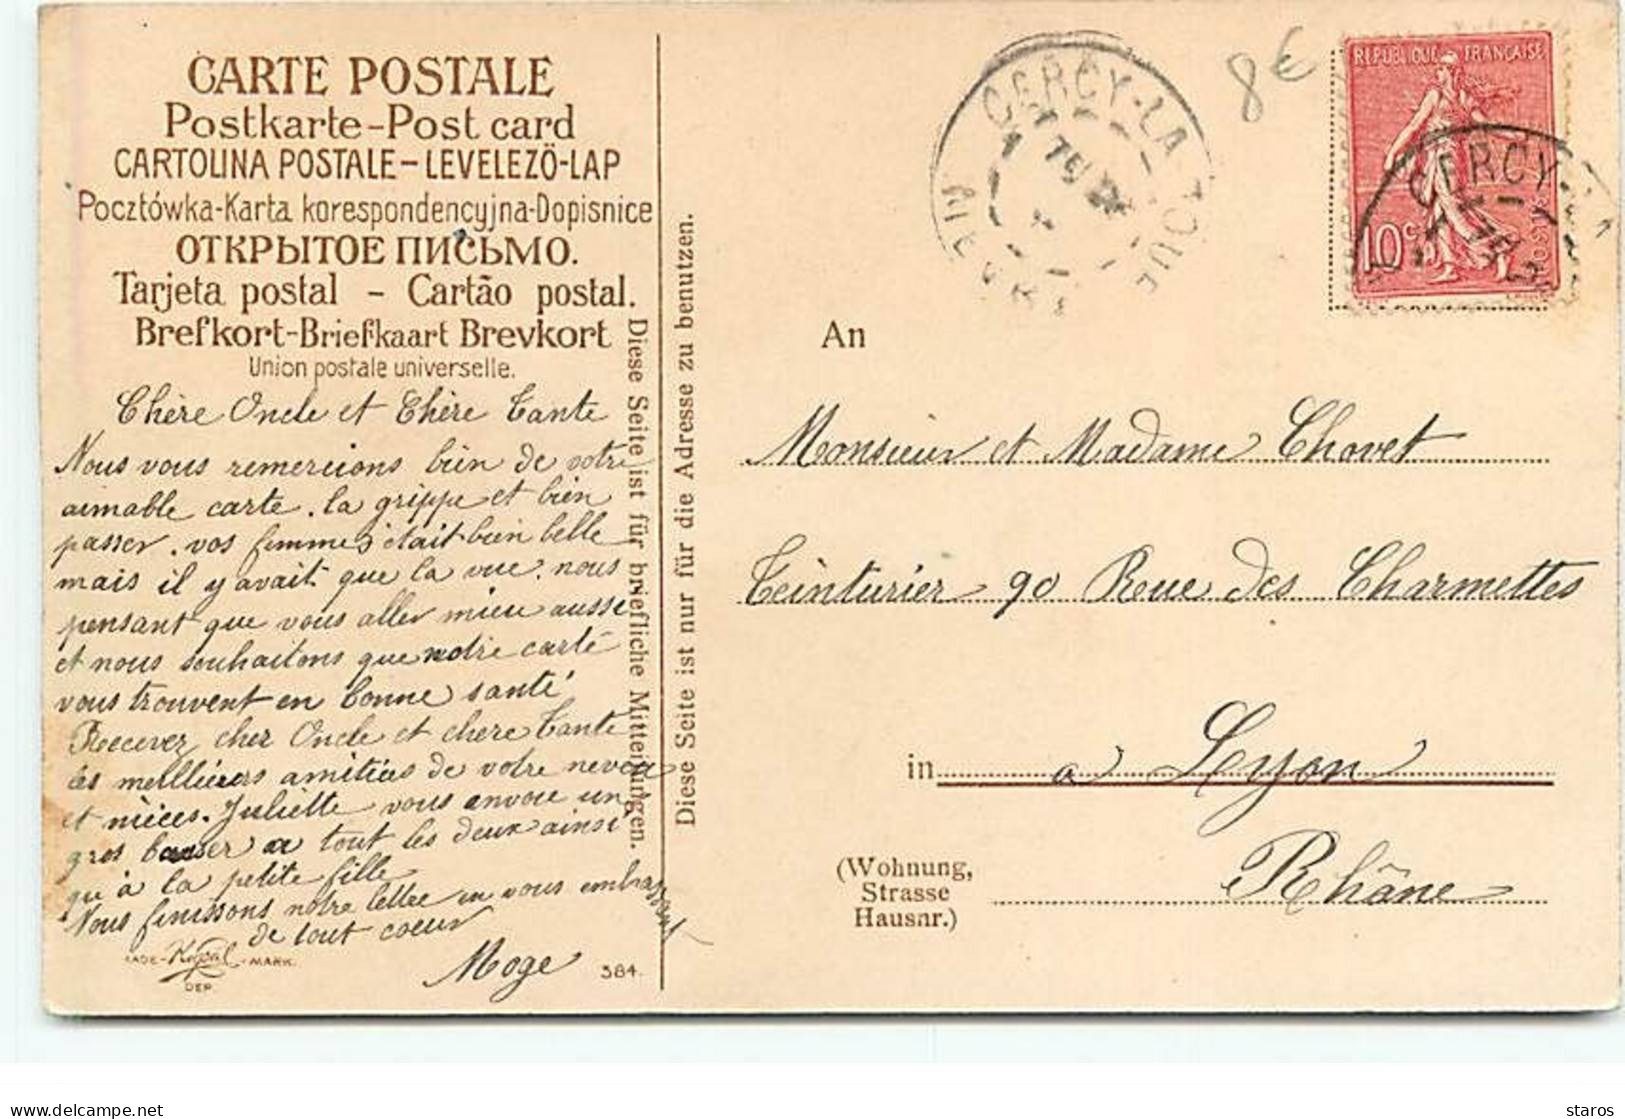 CARTE POSTALE
Postkarte-Post card
CARTOLINA POSTALE-LEVELEZŐ-LAP
Pocztówka-Karta korespondencyjna-Dopisnice
ОТКРЫТОЕ ПИСЬМО.
Tarjeta postal - Cartão postal.
Brefkort-Briefkaart Brevkort
Union postale universelle.
Chère Oncle et Chère Tante
Nous vous remercions bien de votre
aimable carte. la grippe et bien
passer. vos femmes était bien belle
mais il y avait que la vue. nous
pensant que vous aller mieu aussi
et nous souhaitons que notre carte
vous trouvent en bonne santé
Recevez cher Oncle et chere Tante
les meillieurs amitiées de votre neveu
et nièces. Juliette vous envoie un
gros baiser a tout les deux ainsi
qu'à la petite fille
Nous finissons notre lettre en vous embrassant
de tout coeur
Moge
384.
MARK.
DEP.
Diese Seite ist für briefliche Mitteilungen.
Diese Seite ist nur für die Adresse zu benutzen.
CERCY-LA-TOUR
NIEVRE
8€
REPUBLIQUE FRANÇAISE
10c
POSTES
CERCY-LA
An
Monsieur et Madame Chovet
Teinturier 90 Rue des Charmettes
in a Lyon
(Wohnung,
Strasse
Hausnr.)
Rhône
delcampe.net
staros